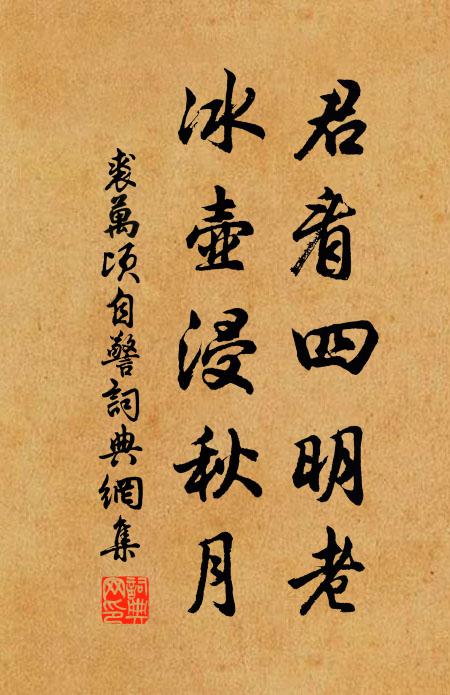 君看四明老
冰壺浸秋月
裘萬頃自警詞典網集
詞典網印